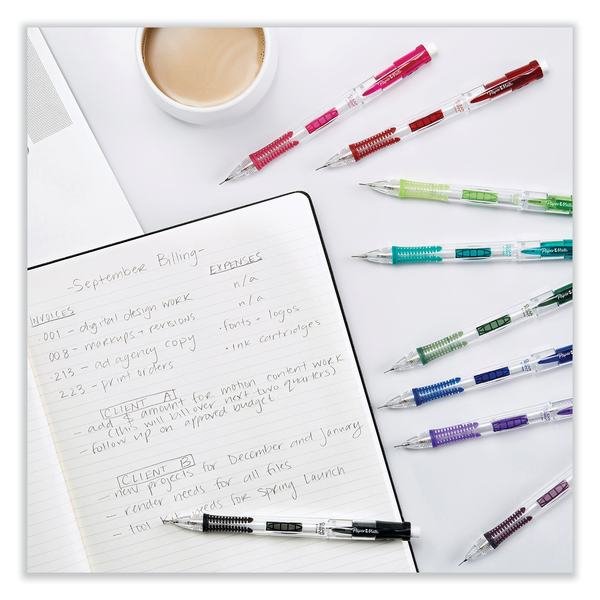 -September Billing-
INVOICES
EXPENSES
.001 - digital design work
n/a
008 - markups + revisions
n/a
.213 - ad agency copy
.fonts + logos
223 - print orders
.ink cartridges
CLIENT A
- add $ amount for motion content work
(this will bill over next two quarters)
- follow up on approved budget.
CLIENT B
- new projects for December and January
- render needs for all files
- tool kit needs for Spring Launch
Paper Mate
Paper Mate
Paper Mate
Paper Mate